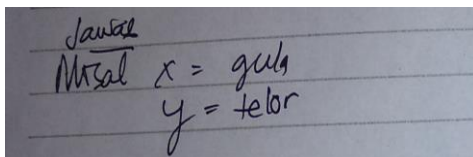 Jawab
Misal x = gula
y = telor